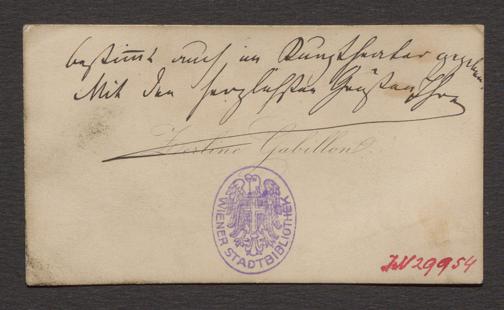 bestimmt auch im Burgtheater gegeben.
Mit den herzlichsten Grüßen Ihre
Zerline Gabillon.
WIENER STADTBIBLIOTHEK
JN 29954